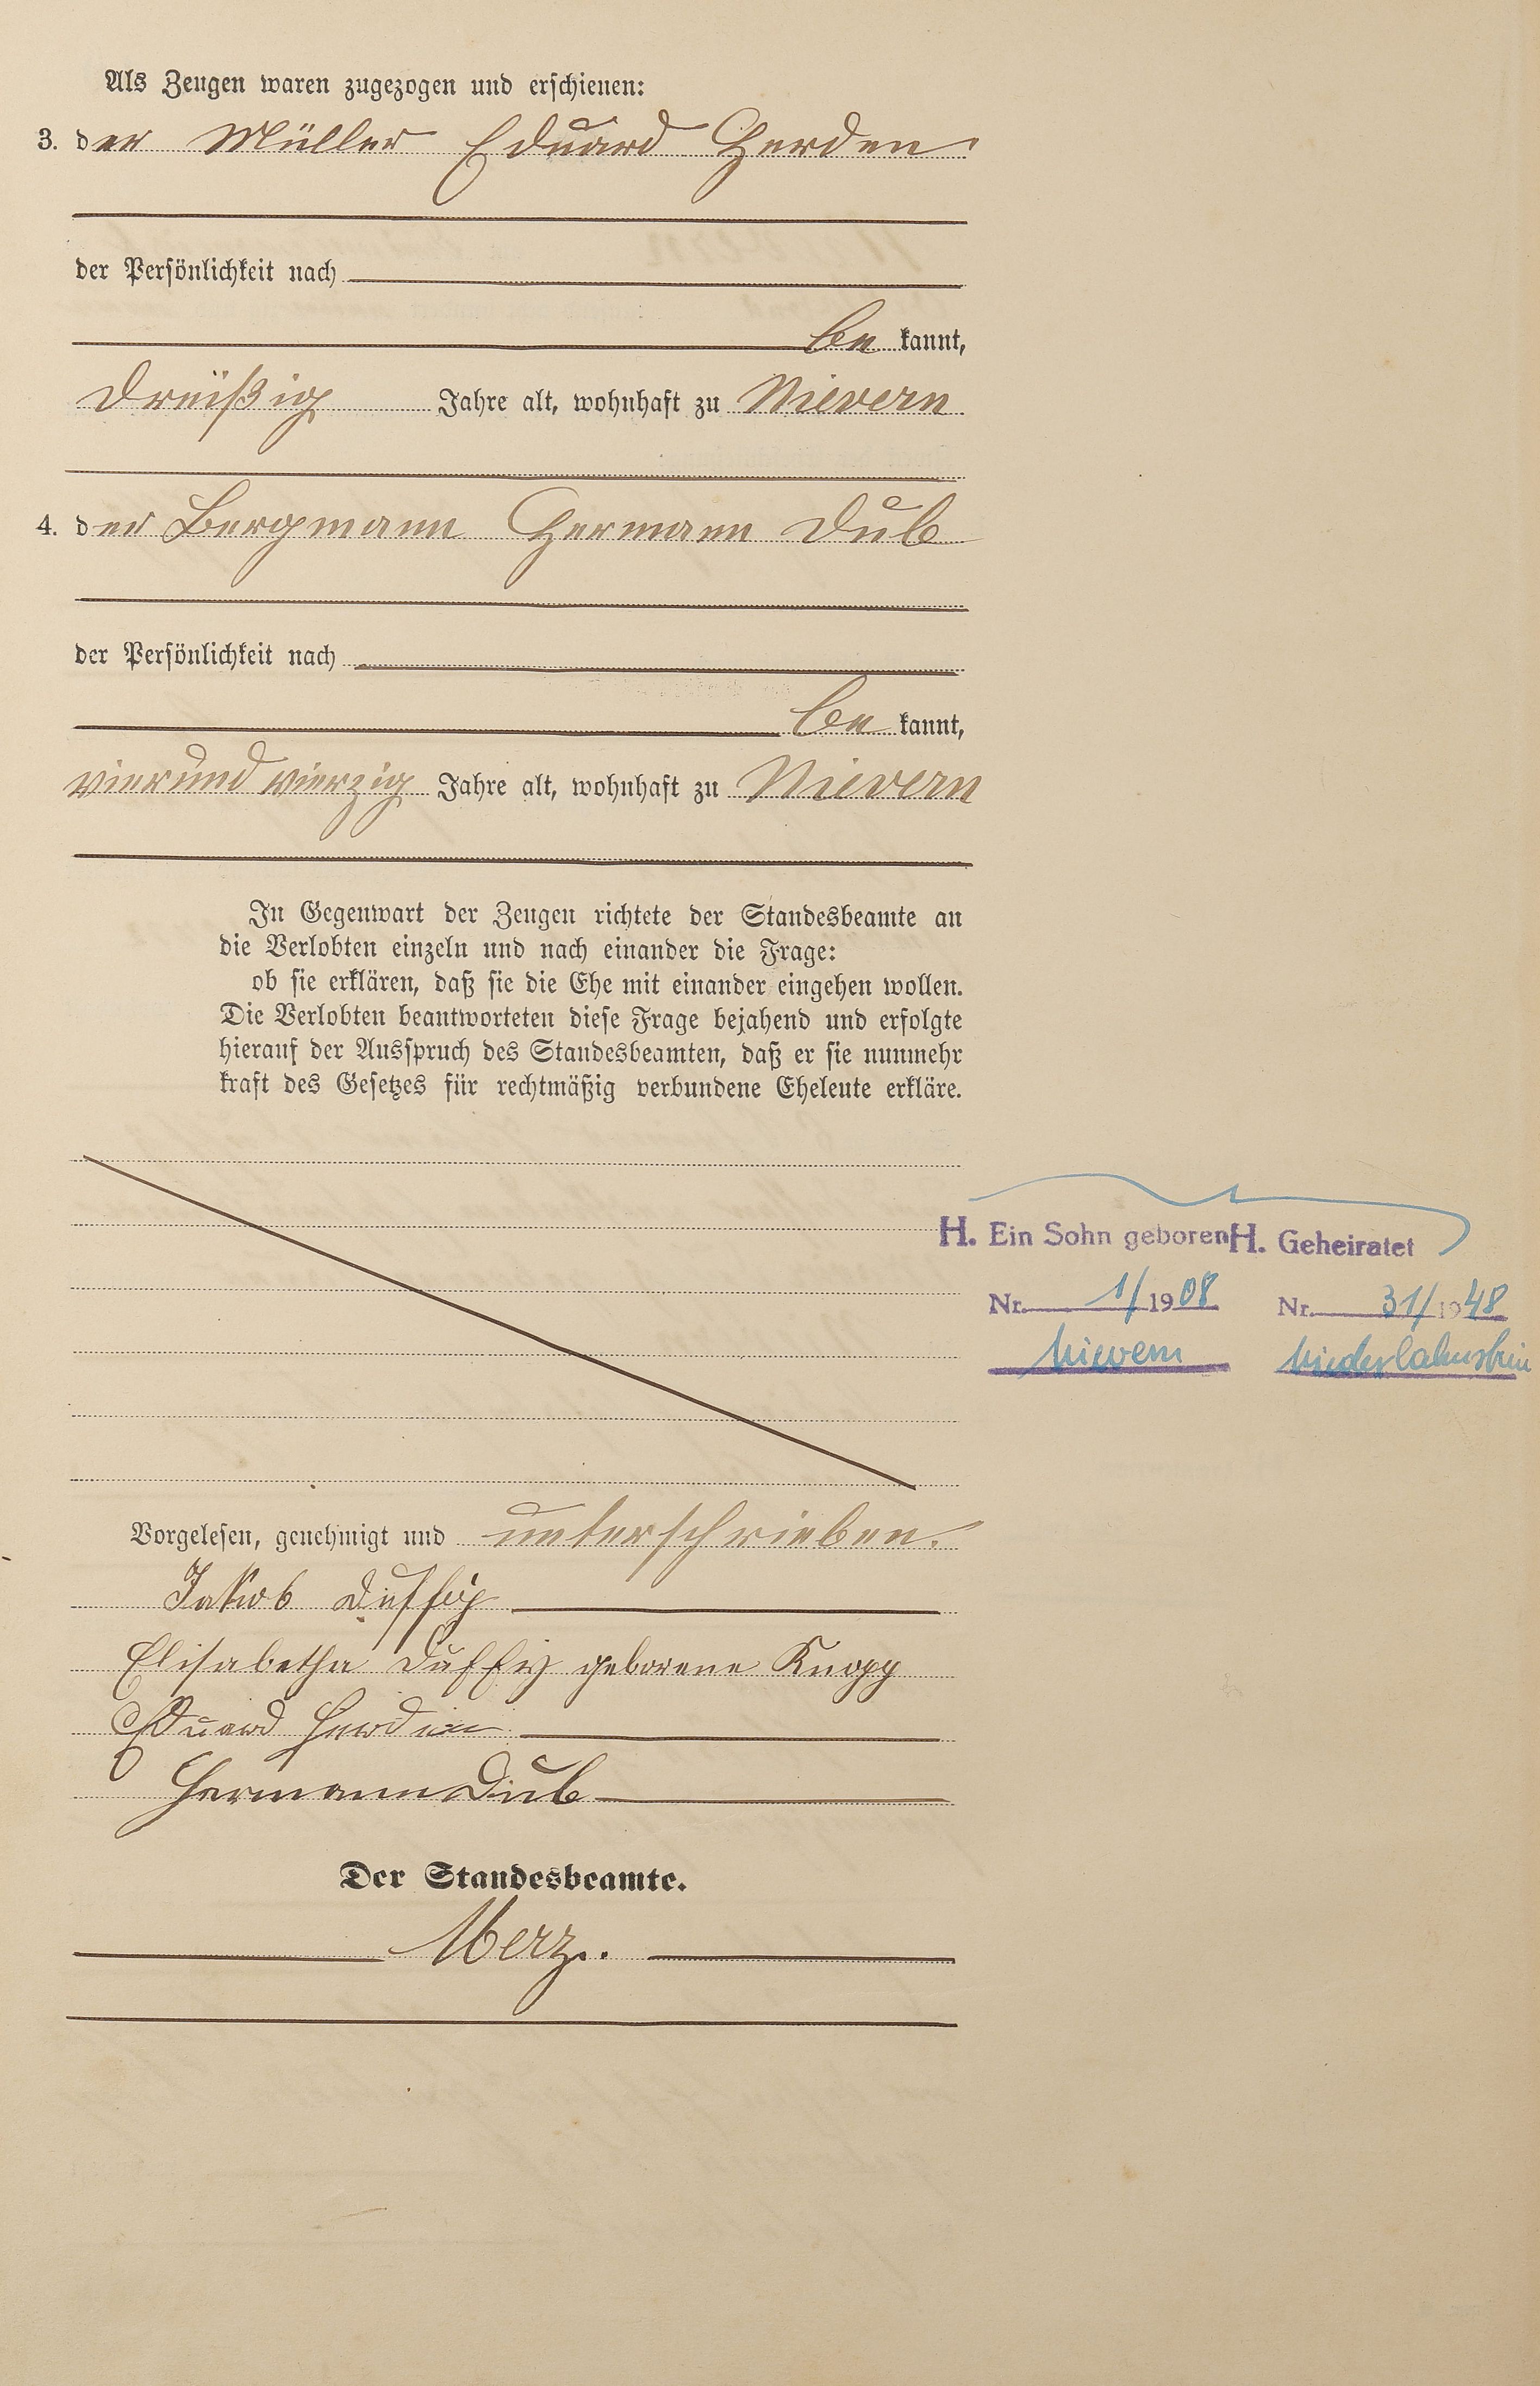 Als Zeugen waren zugezogen und erschienen:
3. der Müller Eduard Herden
der Persönlichkeit nach
be kannt,
dreißig Jahre alt, wohnhaft zu Nievern
4. der Bergmann Hermann Dub
der Persönlichkeit nach
be kannt,
vierundvierzig Jahre alt, wohnhaft zu Nievern
In Gegenwart der Zeugen richtete der Standesbeamte an
die Verlobten einzeln und nach einander die Frage:
ob sie erklären, daß sie die Ehe mit einander eingehen wollen.
Die Verlobten beantworteten diese Frage bejahend und erfolgte
hierauf der Ausspruch des Standesbeamten, daß er sie nunmehr
kraft des Gesetzes für rechtmäßig verbundene Eheleute erkläre.
H. Ein Sohn geboren H. Geheiratet
Nr. 1/1908 Nr. 31/1948
Nievern Niederlahnstein
Vorgelesen, genehmigt und unterschrieben.
Jakob Duffy
Elisabetha Duffy geborene Knopp
Eduard Herden
Hermann Dub
Der Standesbeamte.
Merz.